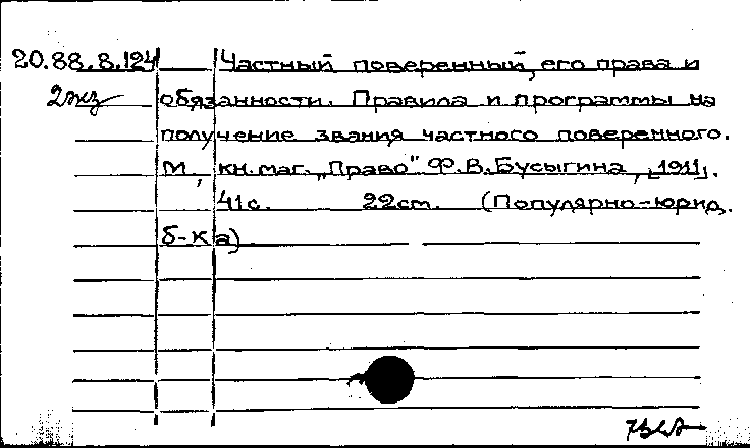 20.88.8.124 Частный поверенный, его права и
2экз обязанности. Правила и программы на
получение звания частного поверенного.
М., кн. маг. „Право" Ф.В. Бусыгина, [1911].
41с. 22cm. (Популярно-юрид.
б-ка)